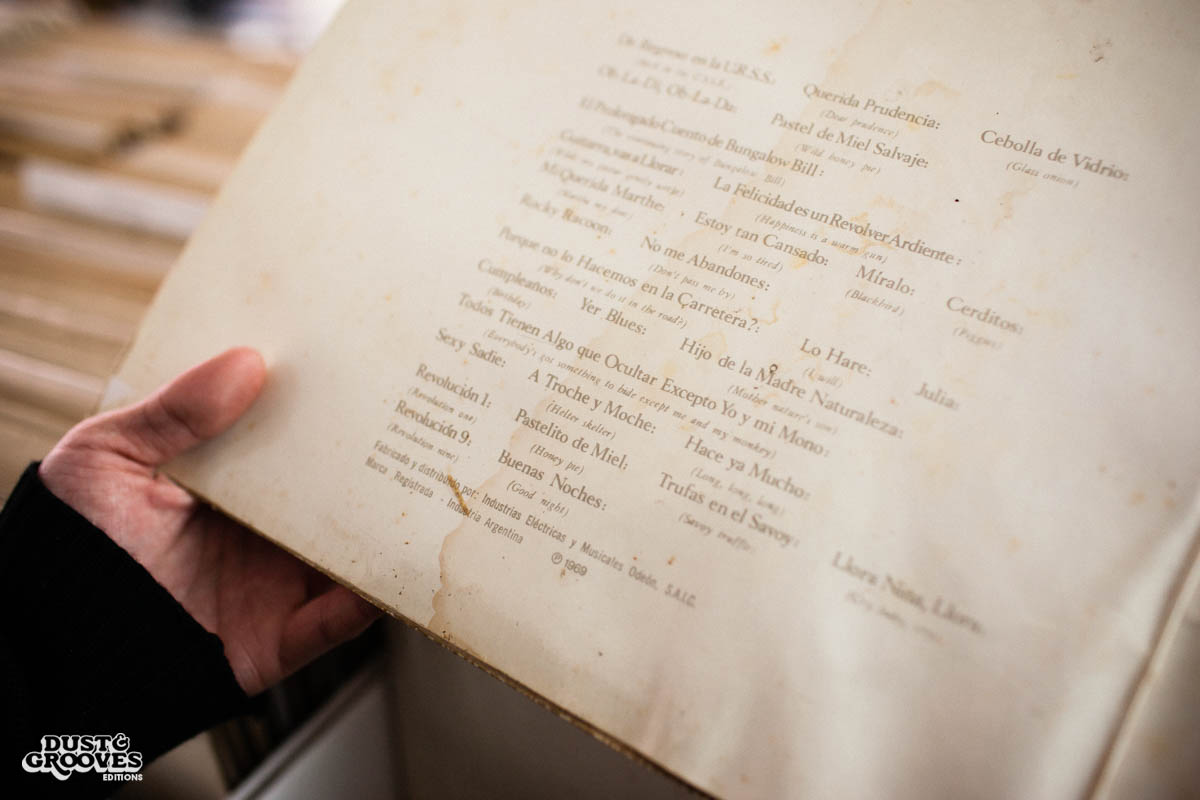 De Regreso en la U.R.S.S.: Querida Prudencia: Cebolla de Vidrio:
(Back in the U.S.S.R.) (Dear prudence) (Glass onion)
Ob-La-Di, Ob-La-Da: Pastel de Miel Salvaje:
(Wild honey pie)
El Prolongado Cuento de Bungalow Bill: La Felicidad es un Revolver Ardiente:
(The continuing story of Bungalow Bill) (Happiness is a warm gun)
Guitarra, vas a Llorar:
(While my guitar gently weeps)
Mi Querida Marthe: Estoy tan Cansado: Míralo: Cerditos:
(Martha my dear) (I'm so tired) (Blackbird) (Piggies)
Rocky Racoon: No me Abandones:
(Don't pass me by)
Porque no lo Hacemos en la Carretera?: Lo Hare: Julia:
(Why don't we do it in the road?) (I will)
Cumpleaños: Yer Blues: Hijo de la Madre Naturaleza:
(Birthday) (Mother nature's son)
Todos Tienen Algo que Ocultar Excepto Yo y mi Mono:
(Everybody's got something to hide except me and my monkey)
Sexy Sadie: A Troche y Moche: Hace ya Mucho:
(Helter skelter) (Long, long, long)
Revolución 1: Pastelito de Miel: Trufas en el Savoy:
(Revolution one) (Honey pie) (Savoy truffle)
Llora Niño, Llora.
Revolución 9: Buenas Noches:
(Revolution nine) (Good night)
Fabricado y distribuido por: Industrias Eléctricas y Musicales Odeón, S.A.I.C.
Marca Registrada - Industria Argentina ℗ 1969
DUST &
GROOVES
EDITIONS